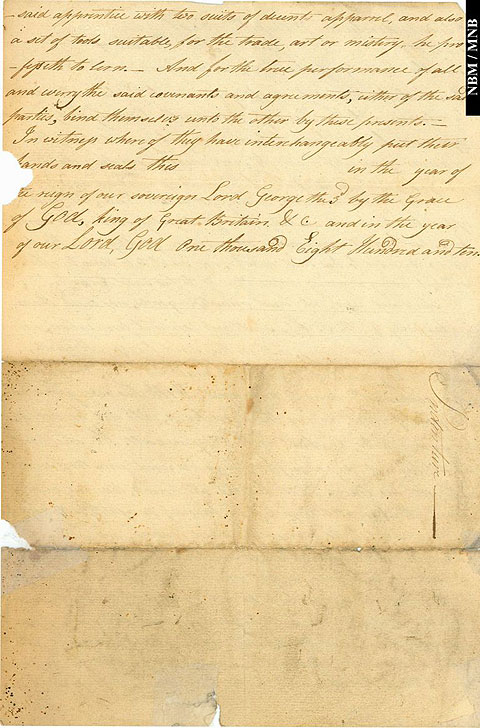 said apprentice with two suits of decent apparel, and also
a set of tools suitable for the trade, art or mistery, he pro
-fesseth to lern — And for the true performance of all
and every the said covenants and agreements, either of the said
parties, bind themselvs unto the other by these presents. —
In witness where of they have interchangeably put their
hands and seals this in the year of
the reign of our sovereign Lord George the 3d by the Grace
of God, king of Great Britain & c and in the year
of our Lord, God One thousand Eight Hundred and ten
Indenture
NBM / MNB